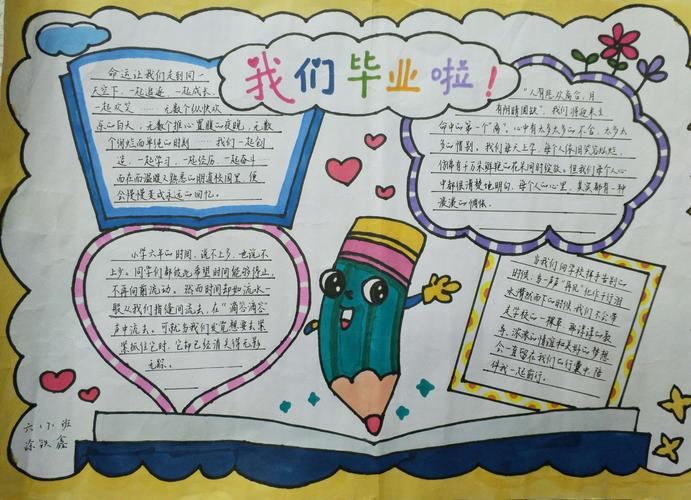 我们毕业啦！
命运让我们走到同一
天空下，一起追逐，一起成长，
一起欢笑……无数个纵欢
乐的白天，无数个推心置腹的夜晚，无数
个绚烂而单纯的时刻……我们一起创
造，一起学习，一起经历，一起奋斗……
而在而温暖又熟悉的明道校园里，便
会慢慢变成永远的回忆。
"人有悲欢离合，月
有阴晴圆缺"，我们将迎来生
命中的第一个"离"。心中有太多太多的不舍，太多太
多的惜别。我们每天上学，每个人依旧笑容灿烂，
仿佛有千万朵鲜艳的花朵同时绽放。但我们每个人心
中都很清楚地明白，每个人的心里，其实都有一种
淡淡的惆怅。
小学六年的时间，说不上多，也说不
上少。同学们都希望时间能够停止，
不再向前流动。然而时间却如流水一
般从我们指缝间流去，在"滴答滴答"
声中流去。可就当我们发觉想要去紧
紧抓住它时，它却已经消失得无影
无踪。
当我们向学校挥手告别的
时候，当一声声"再见"化作行行泪
水潸然而下的时候，我们不会带
走学校的一棵草，而谆谆的教
导、浓浓的情谊和美好的梦想
会一直留在我们的行囊中，陪
伴我一起前行。
六班
涂鑫